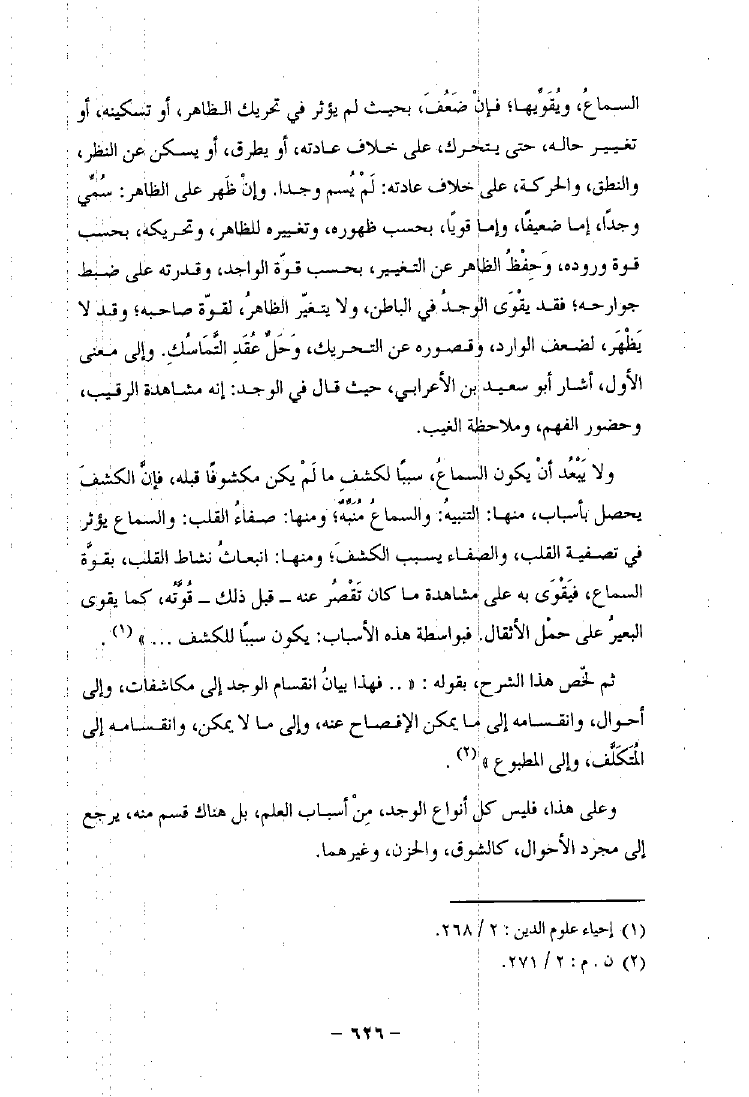 السماعُ، ويُقَوِّيها؛ فإنْ ضَعُفَ، بحيث لم يؤثر في تحريك الظاهر، أو تسكينه، أو
تغيير حاله، حتى يتحرك، على خلاف عادته، أو يطرق، أو يسكن عن النظر،
والنطق، والحركة، على خلاف عادته: لَمْ يُسم وجدا. وإنْ ظَهر على الظاهر: سُمِّي
وجدًا، إما ضعيفًا، وإما قويًا، بحسب ظهوره، وتغييره للظاهر، وتحريكه، بحسب
قوة وروده، وَحِفْظُ الظاهر عن التغيير، بحسب قوّة الواجد، وقدرته على ضبط
جوارحه؛ فقد يقْوَى الوجدُ في الباطن، ولا يتغيّر الظاهرُ، لقوّة صاحبه؛ وقد لا
يَظْهَر، لضعف الوارد، وقصوره عن التحريك، وَحَلِّ عُقَدِ التَّمَاسُكِ. وإلى معنى
الأول، أشار أبو سعيد بن الأعرابي، حيث قال في الوجد: إنه مشاهدة الرقيب،
وحضور الفهم، وملاحظة الغيب.
ولا يَبْعُد أنْ يكون السماعُ، سببًا لكشف ما لَمْ يكن مكشوفًا قبله، فإنَّ الكشفَ
يحصل بأسباب، منها: التنبيهُ: والسماعُ مُنَبِّهٌ؛ ومنها: صفاءُ القلب: والسماع يؤثر
في تصفية القلب، والصفاء يسبب الكشفَ؛ ومنها: انبعاثُ نشاط القلب، بقوَّة
السماع، فيَقْوَى به على مشاهدة ما كان تَقْصُر عنه ـ قبل ذلك ـ قُوَّتُه، كما يقوى
البعيرُ على حمْل الأثقال. فبواسطة هذه الأسباب: يكون سببًا للكشف ... » (١) .
ثم لخّص هذا الشرح، بقوله : « .. فهذا بيانُ انقسام الوجد إلى مكاشفات، وإلى
أحوال، وانقسامه إلى ما يمكن الإفصاح عنه، وإلى ما لا يمكن، وانقسامه إلى
المُتَكَلَّف، وإلى المطبوع » (٢) .
وعلى هذا، فليس كل أنواع الوجد، مِنْ أسباب العلم، بل هناك قسم منه، يرجع
إلى مجرد الأحوال، كالشوق، والحزن، وغيرهما.
(١) إحياء علوم الدين : ٢ / ٢٦٨.
(٢) ن . م : ٢ / ٢٧١.
– ٦٢٦ –